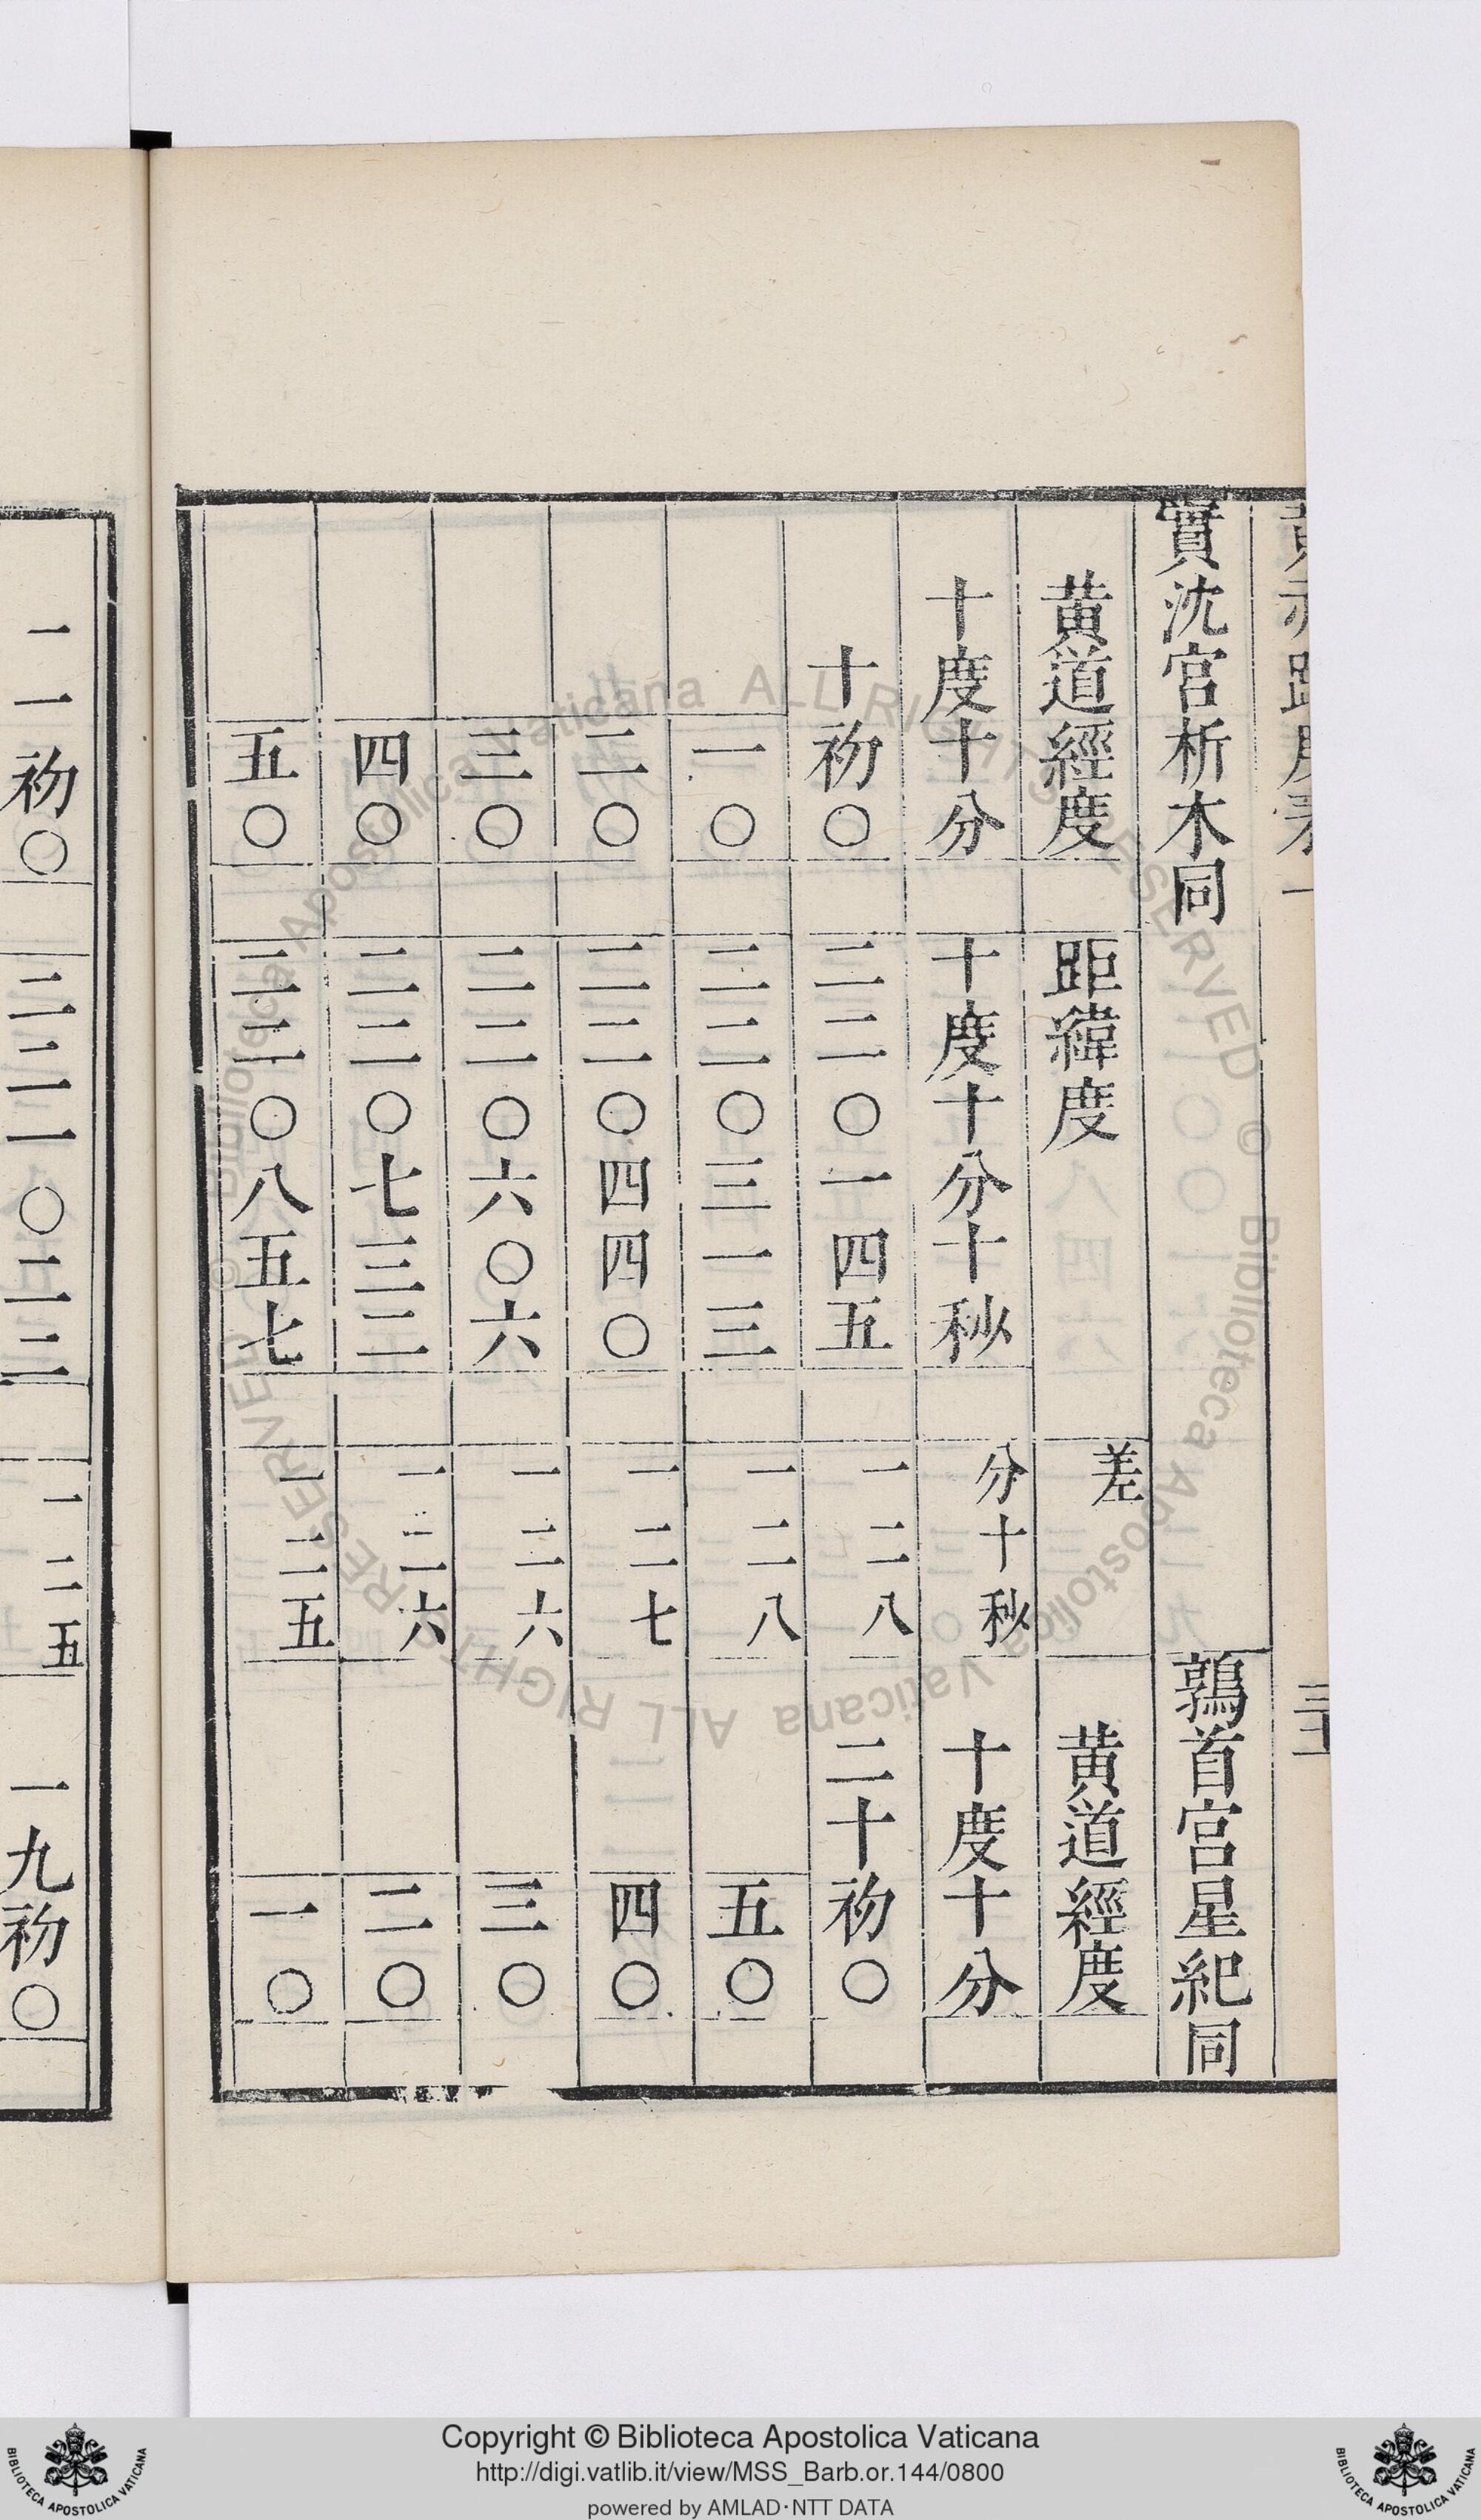 實沈宮析木同 鶉首宮星紀同
黄道經度 距緯度 差 黄道經度
十度十分 十度十分十秒 分十秒 十度十分
十初〇 二二〇一四五 一二八 二十初〇
一〇 二二〇三一三 一二八 五〇
二〇 二二〇四四〇 一二七 四〇
三〇 二二〇六〇六 一二六 三〇
四〇 二二〇七三二 一二六 二〇
五〇 二二〇八五七 一二五 一〇
一一初〇 二二一〇二二 一二五 一九初〇
© Biblioteca Apostolica Vaticana ALL RIGHTS RESERVED © Biblioteca Apostolica Vaticana ALL RIGHTS RESERVED
Copyright © Biblioteca Apostolica Vaticana
http://digi.vatlib.it/view/MSS_Barb.or.144/0800
powered by AMLAD·NTT DATA
BIBLIOTECA APOSTOLICA VATICANA
BIBLIOTECA APOSTOLICA VATICANA